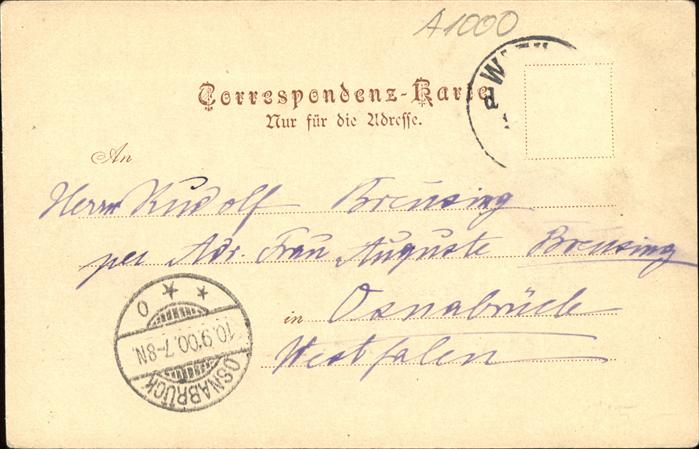 A1000
W
Correspondenz-Karte
Nur für die Adresse.
An
Herrn Rudolf Breusing
per Adr. Frau Auguste Breusing
in Osnabrück
Westfalen
OSNABRÜCK
10.9.00.7-8N
* * o